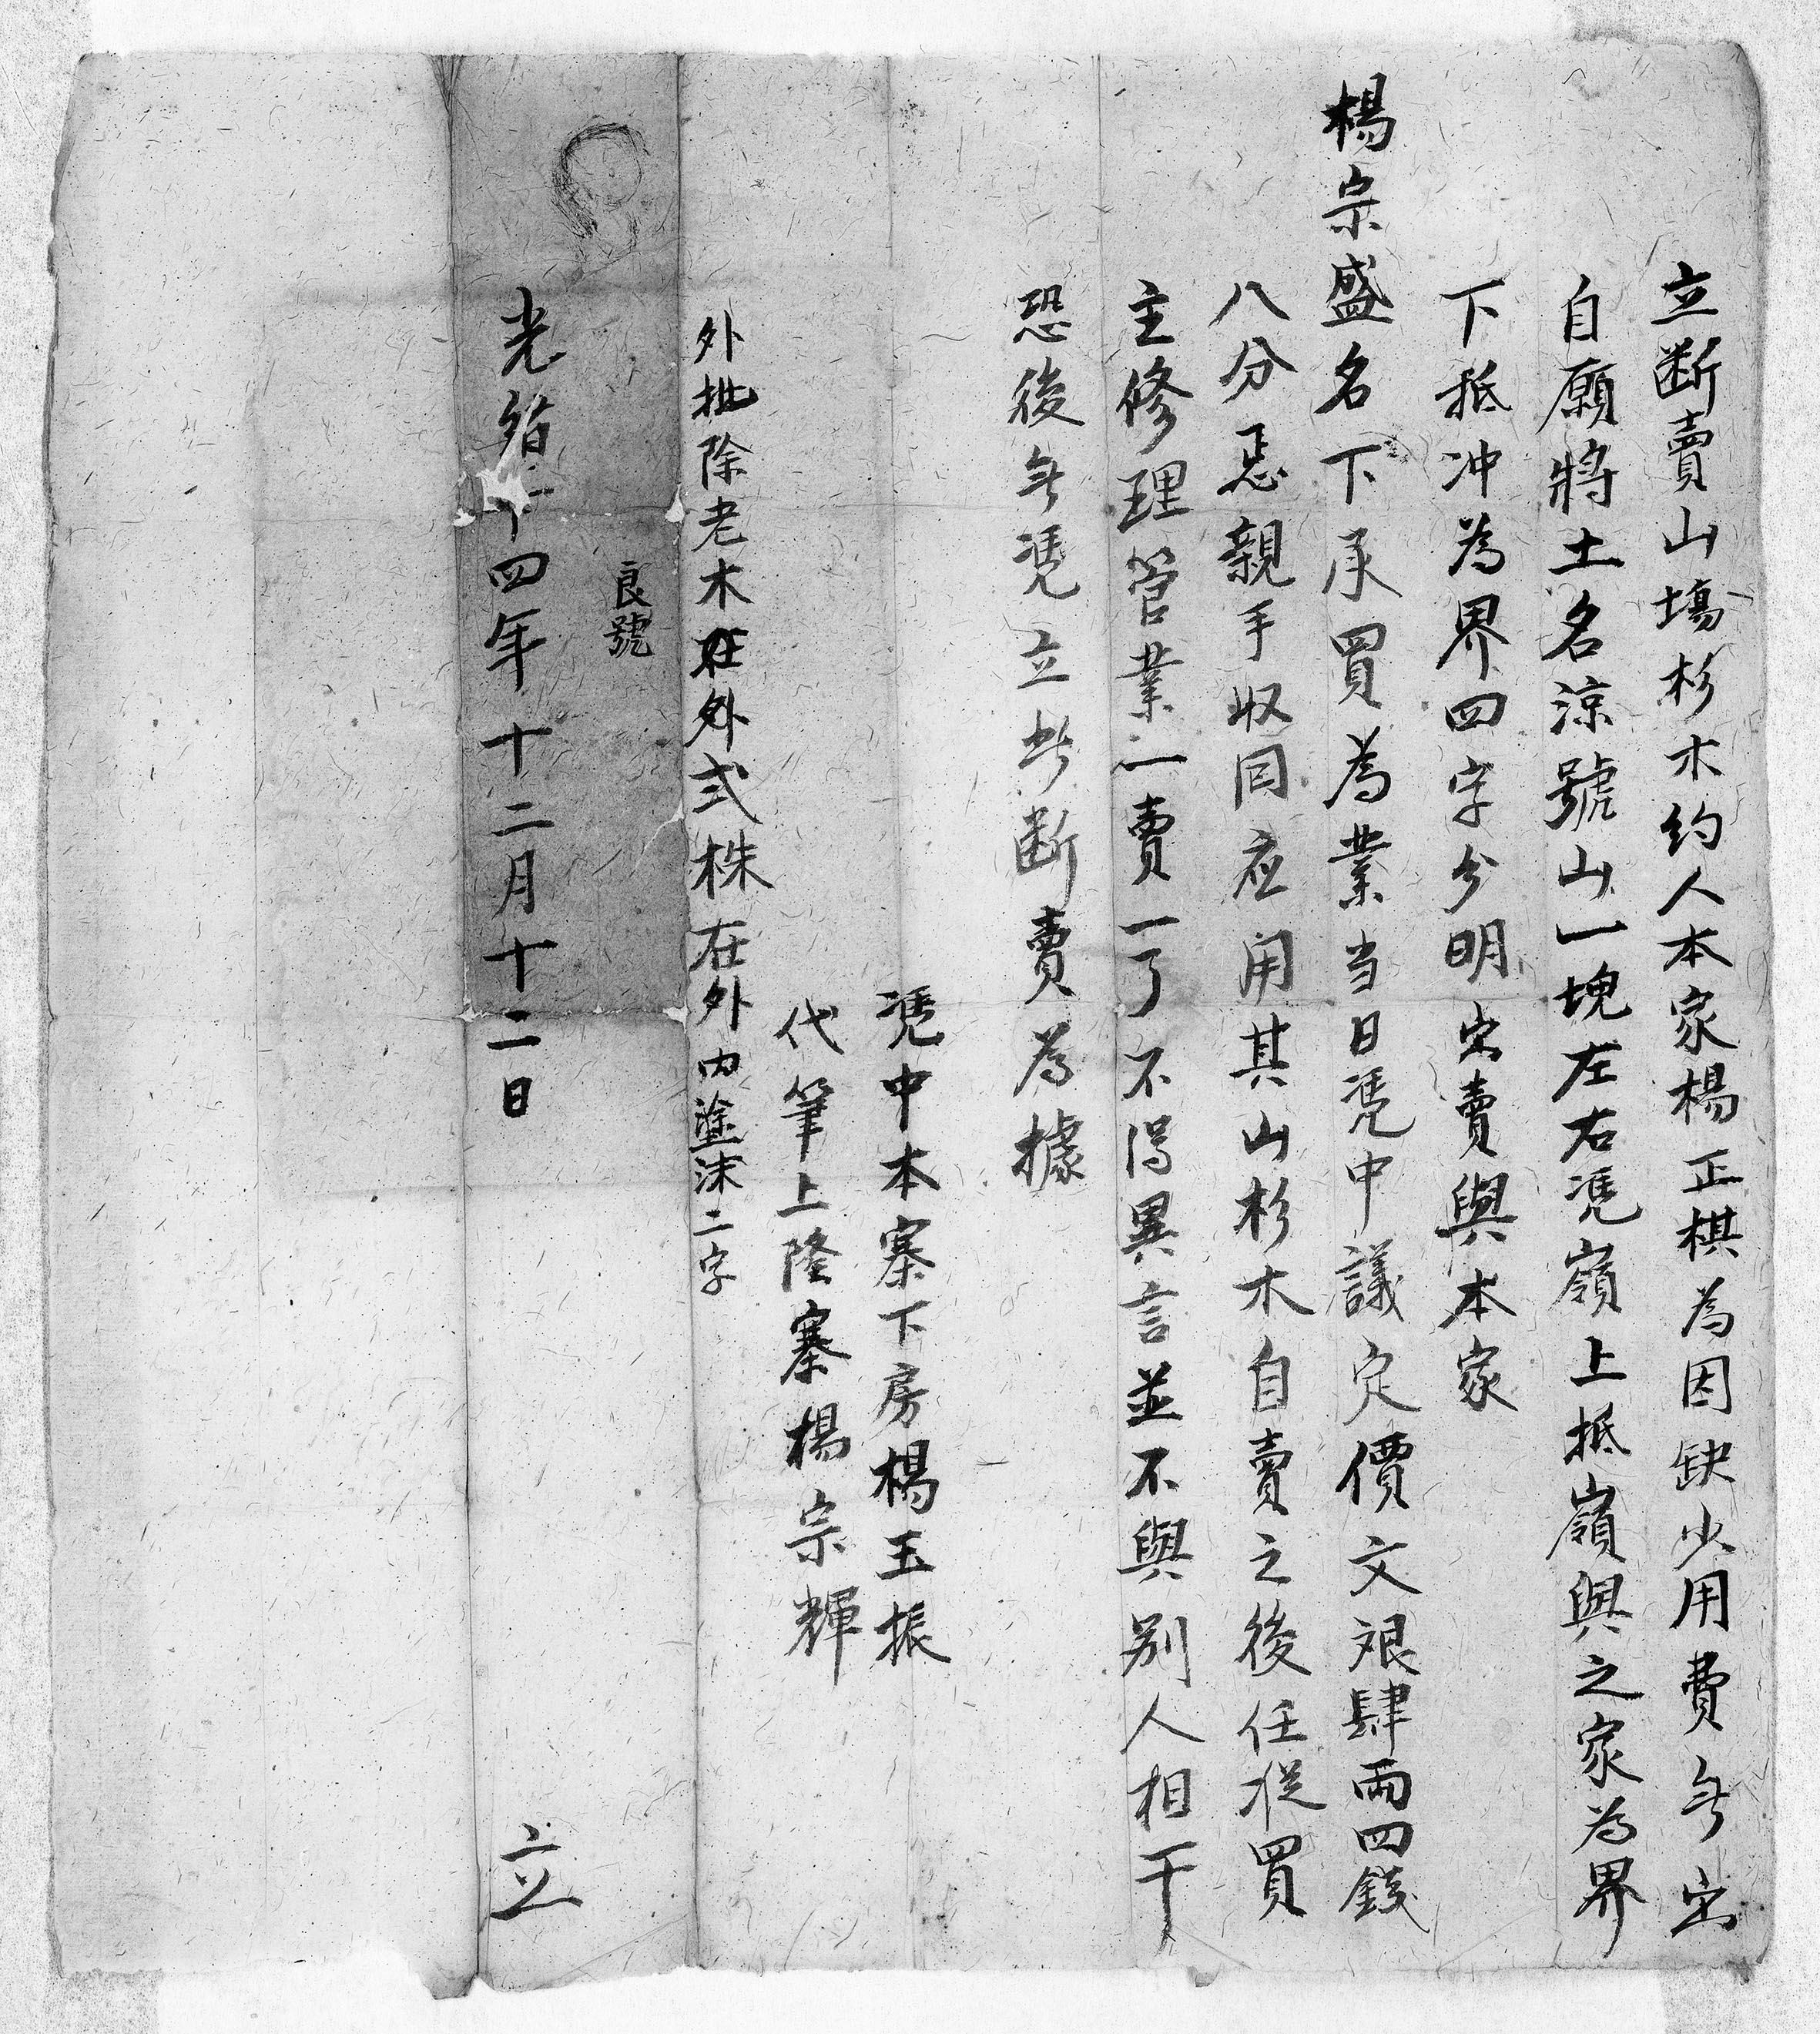 立断賣山塲杉木约人本家楊正棋為因缺少用費無出
自願將土名涼號山一塊左右凴嶺上抵嶺與之家為界
下抵冲為界四字分明出賣與本家
楊宗盛名下承買為業当日凴中議定價文艮肆両四錢
八分忌親手収囘应用其山杉木自賣之後任从買
主修理管業一賣一了不淂異言並不與别人相干
恐後無凴立此断賣為據
凴中本寨下房楊玉振
代筆上隆寨楊宗輝
外批除老木在外弍株在外内塗沫二字
良號
光绪十四年十二月十二日 立